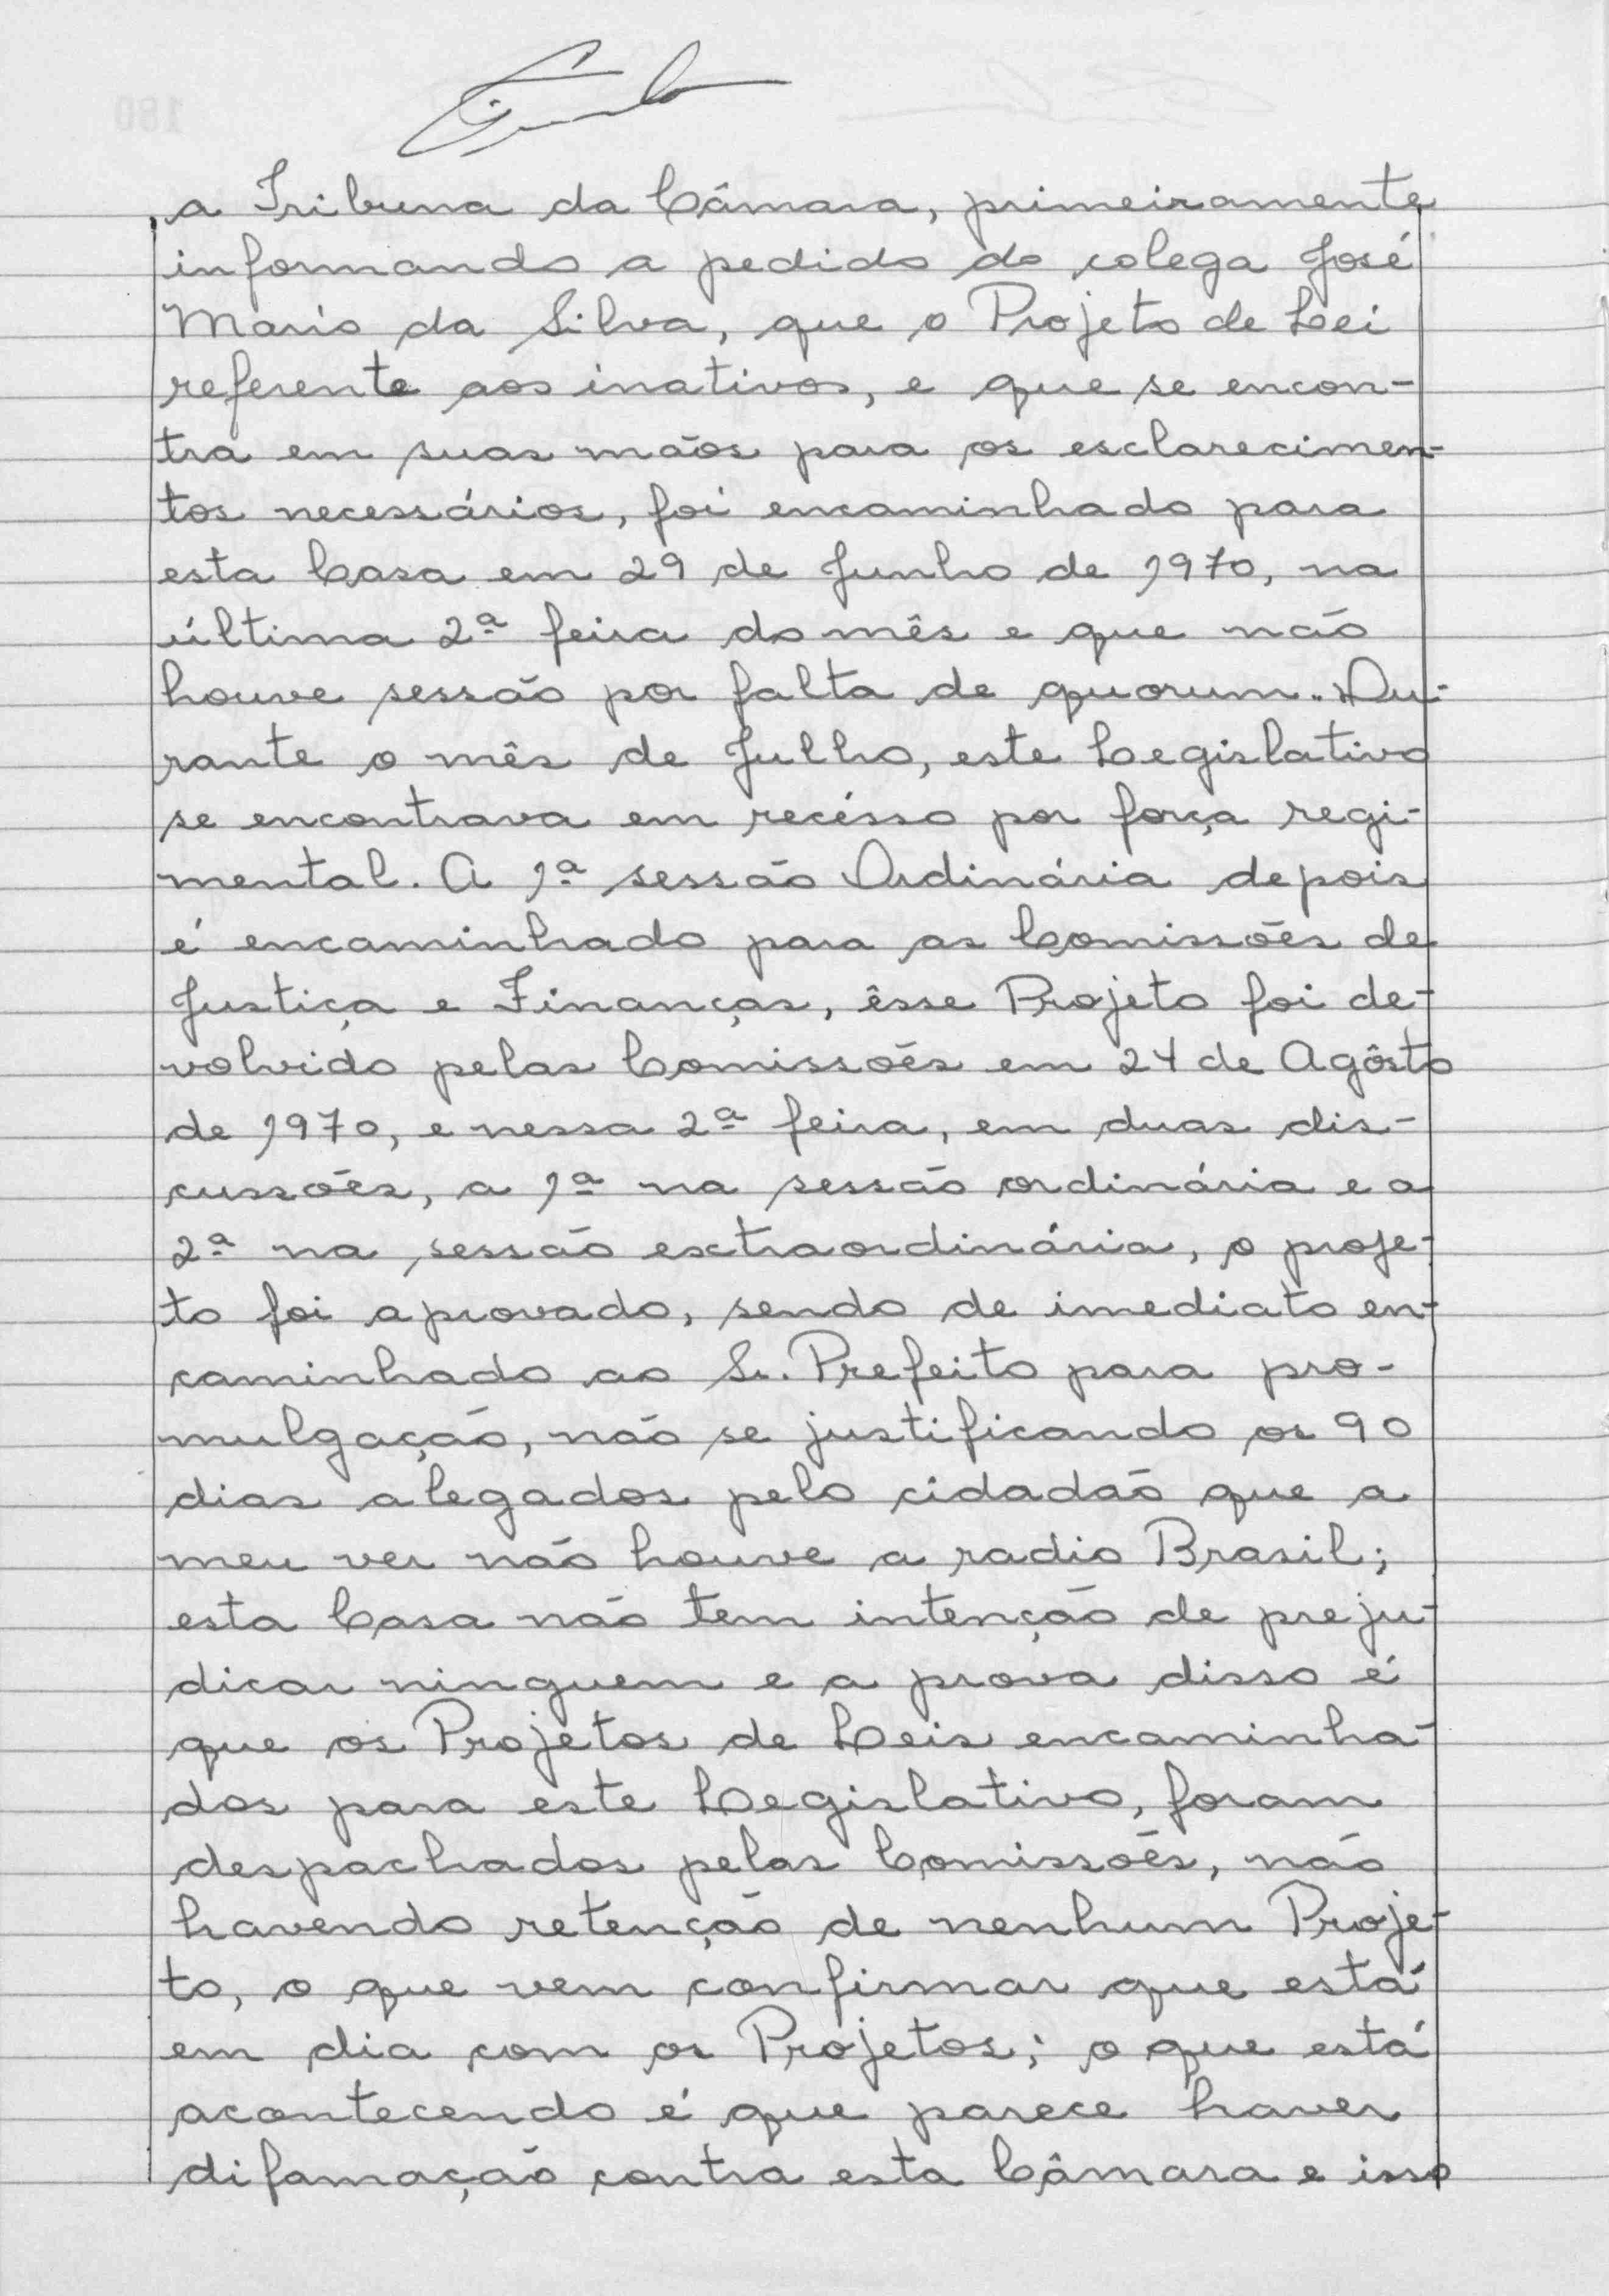 a Tribuna da Câmara, primeiramente
informando a pedido do colega José
Mario da Silva, que o Projeto de Lei
referente aos inativos, e que se encon-
tra em suas mãos para os esclarecimen-
tos necessários, foi encaminhado para
esta Casa em 29 de Junho de 1970, na
última 2ª feira do mês e que não
houve sessão por falta de quorum. Du-
rante o mês de Julho, este Legislativo
se encontrava em recésso por força regi-
mental. A 1ª sessão Ordinária depois
é encaminhado para as Comissões de
Justiça e Finanças, êsse Projeto foi de-
volvido pelas Comissões em 24 de Agôsto
de 1970, e nessa 2ª feira, em duas dis-
cussões, a 1ª na sessão ordinária e a
2ª na sessão extraordinária, o proje-
to foi aprovado, sendo de imediato en-
caminhado ao Sr. Prefeito para pro-
mulgação, não se justificando os 90
dias alegados pelo cidadão que a
meu ver não houve a radio Brasil;
esta Casa não tem intenção de preju-
dicar ninguem e a prova disso é
que os Projetos de Leis encaminha-
dos para este Legislativo, foram
despachados pelas Comissões, não
havendo retenção de nenhum Proje-
to, o que vem confirmar que está
em dia com os Projetos; o que está
acontecendo é que parece haver
difamação contra esta Câmara e isso